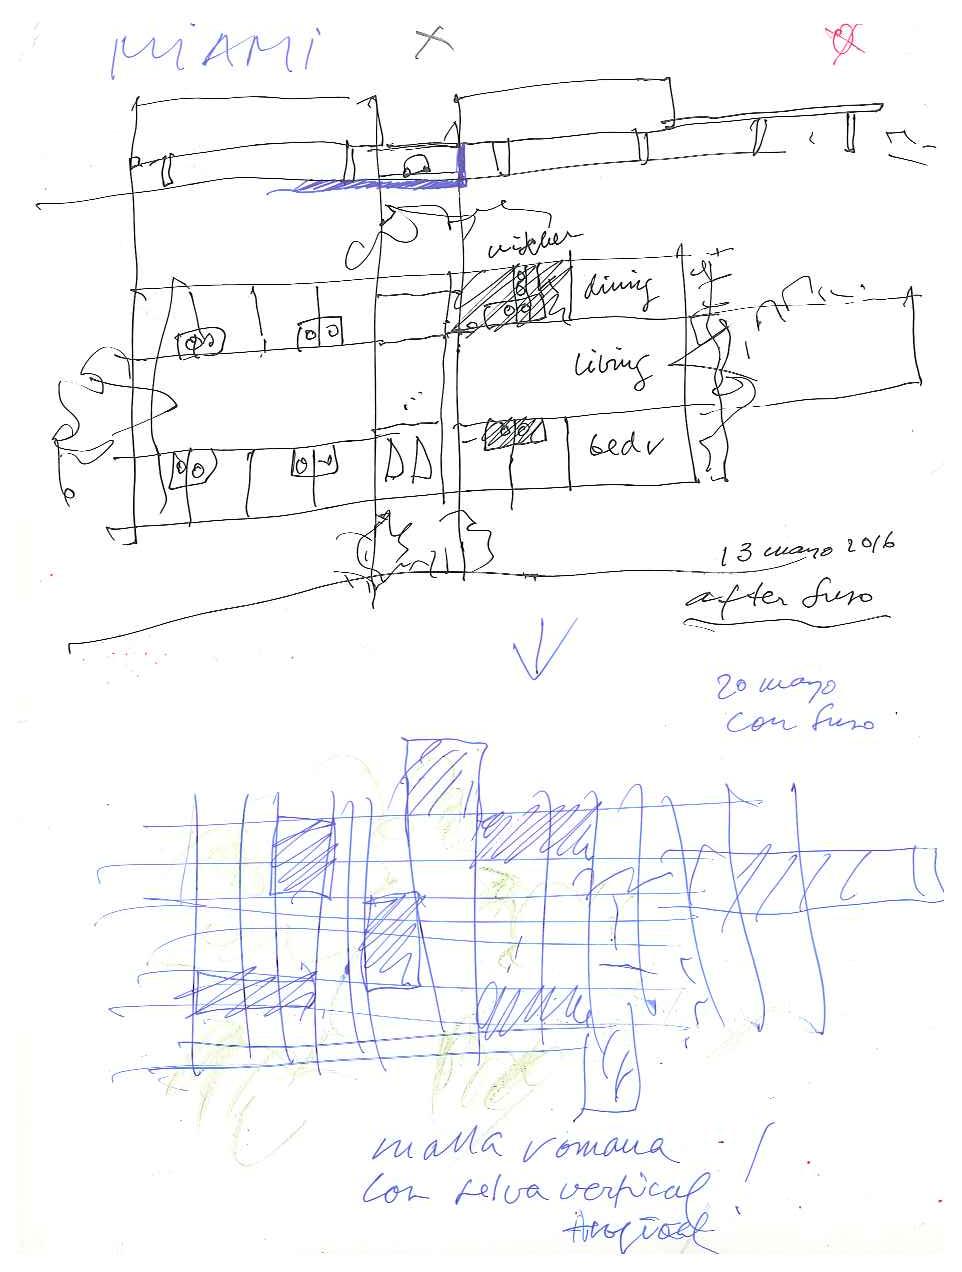 MIAMI
dining
living
bedr
13 mayo 2016
after Suso
20 mayo
con Suso
malla romana
con selva vertical !